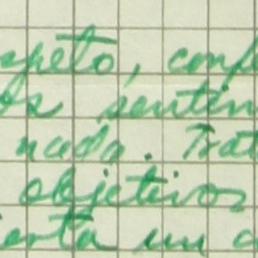 speto, conf
os sentim
nada. Trat
objetivos
ienta un c